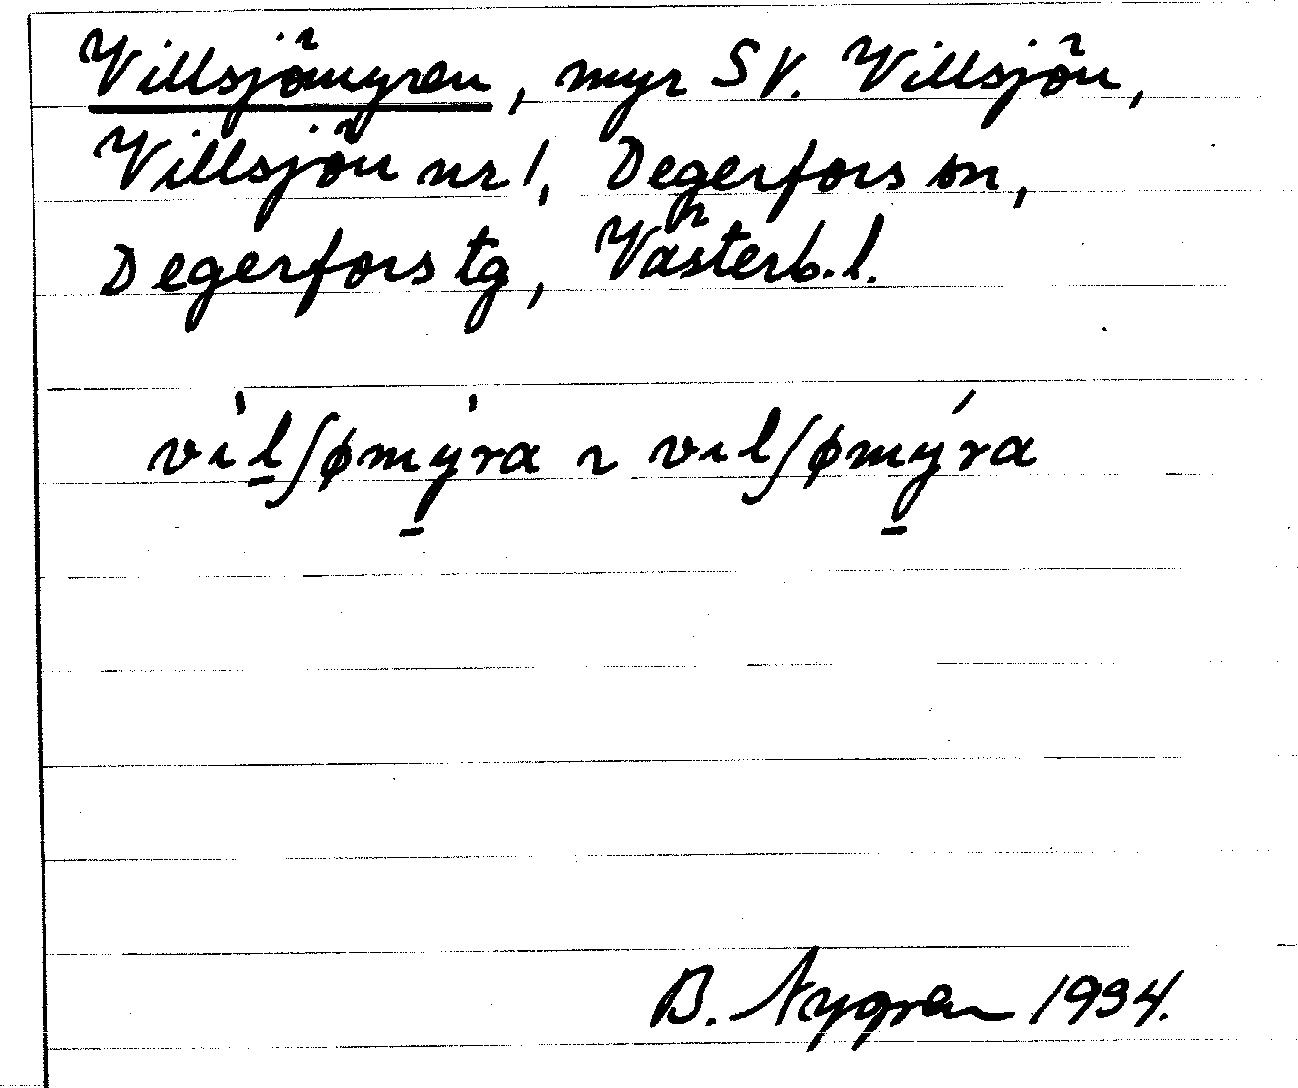 Villsjömyren, myr SV. Villsjön,
Villsjön nr 1, Degerfors sn,
Degerfors tg, Västerb. l.
vìl̲ʃømỳ̲ra ~ vilʃømý̲ra
B. Nygren 1934.